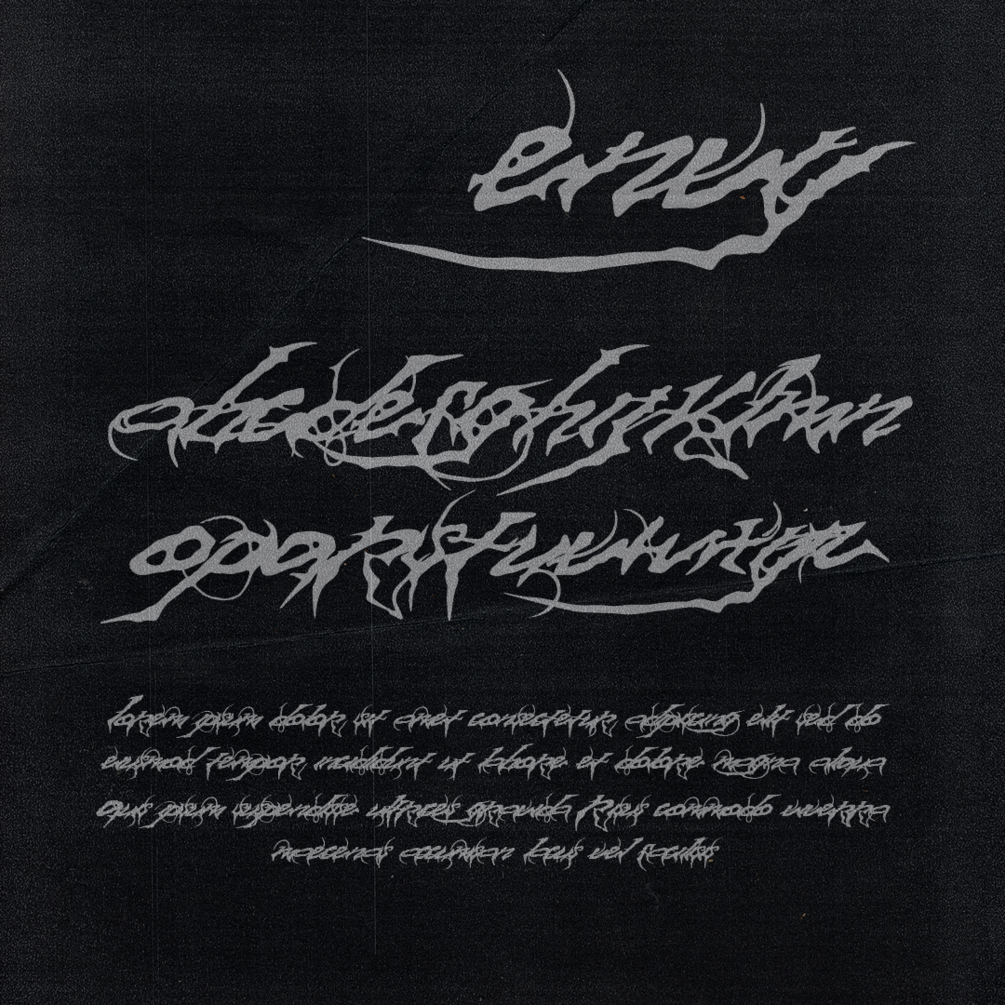 envy
abcdefghijklmn
opqrstuvwxyz
lorem ipsum dolor sit amet consectetur adipiscing elit sed do
eiusmod tempor incididunt ut labore et dolore magna aliqua
quis ipsum suspendisse ultrices gravida risus commodo viverra
maecenas accumsan lacus vel facilisis